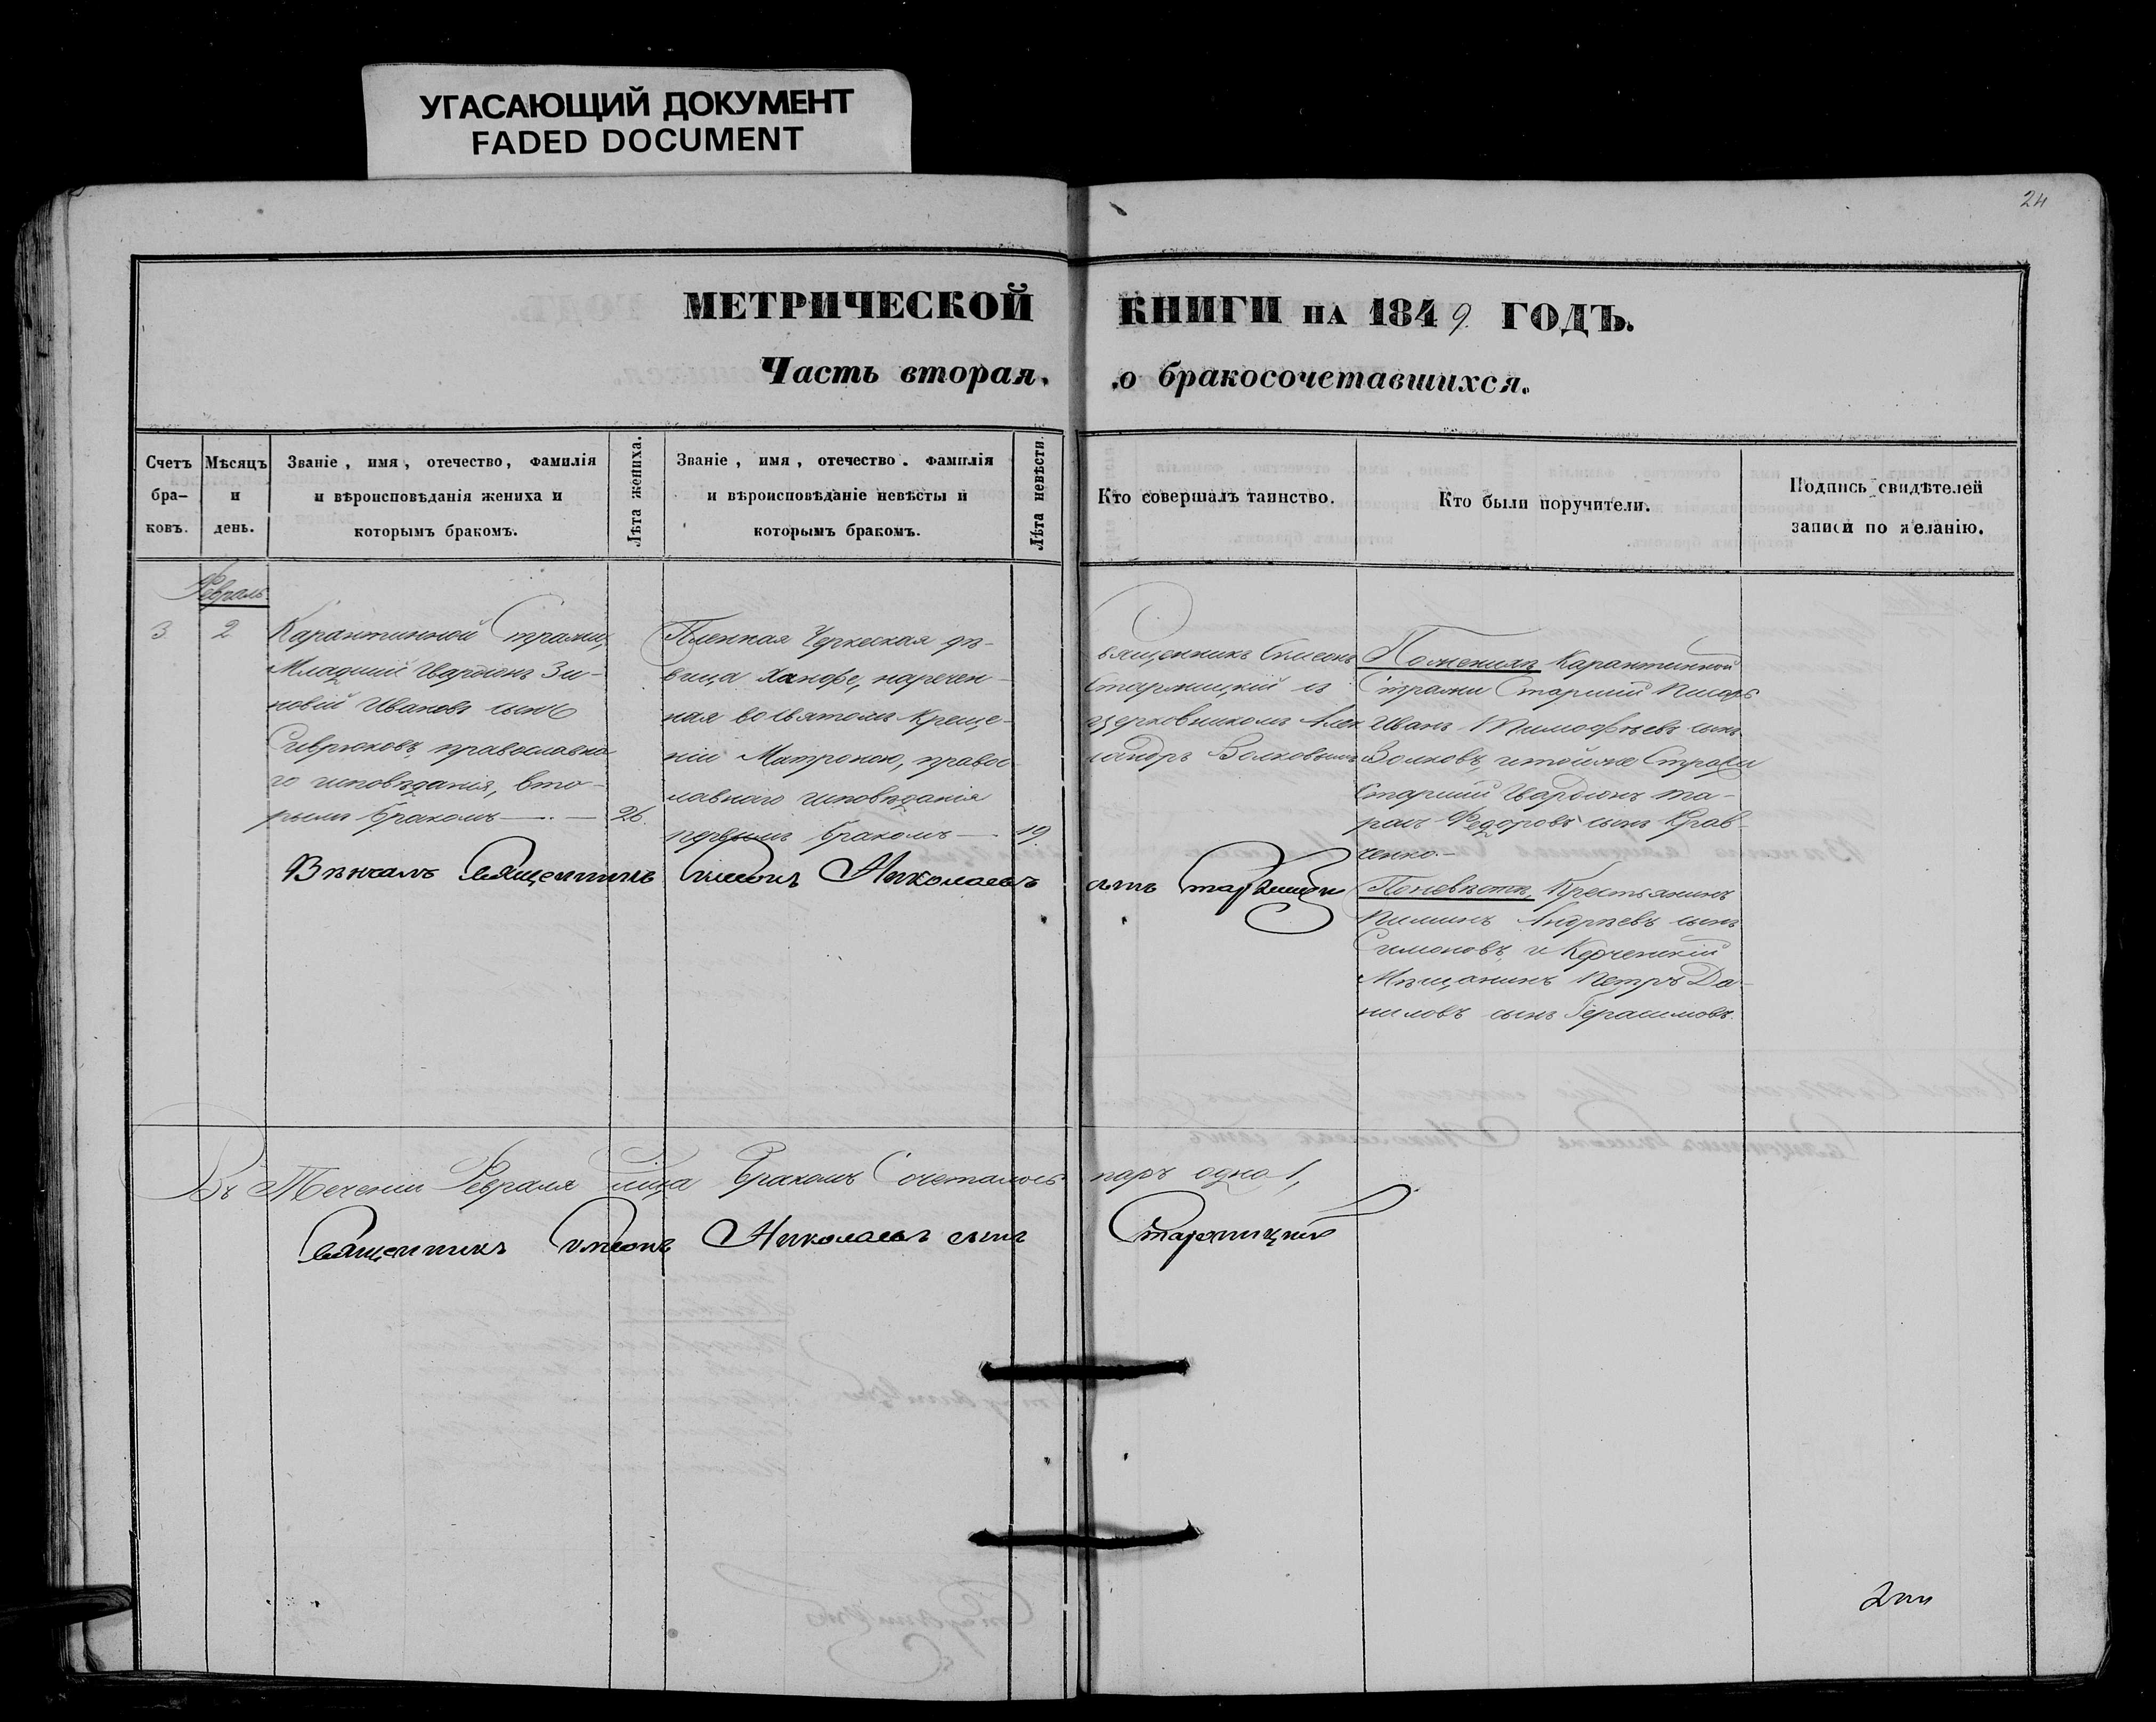 УГАСАЮЩИЙ ДОКУМЕНТ
FADED DOCUMENT
24
МЕТРИЧЕСКОЙ КНИГИ НА 1849 ГОДЪ.
Часть вторая, о бракосочетавшихся.
Счетъ
бра-
ковъ.
Мѣсяцъ
и
день.
Званіе, имя, отечество, фамилія
и вѣроисповѣданія жениха и
которымъ бракомъ.
Лѣта жениха.
Званіе, имя, отечество. фамилія
и вѣроисповѣданіе невѣсты и
которымъ бракомъ.
Лѣта невѣсти.
Кто совершалъ таинство.
Кто были поручители.
Подпись свидѣтелей
записи по желанію.
Февраль
3. 2
Карантинной Стражи,
Младшій Гвардіонъ Зи-
новій Ивановъ сынъ
Сиврюковъ, православна
го исповѣданія, вто-
рымъ бракомъ 26.
Пленная Черкеская дѣ-
вица Ханфе, наречен-
ная во святомъ Креще-
ніи Матроною, правос
лавного исповѣданія
первымъ бракомъ 19
Священникъ Симеонъ
Стармицкій из
церковникомъ Алек
сандръ Волковымъ
По женихѣ Карантинной
Стражи Старшій писарь
Иванъ Тимофѣевъ сынъ
Волковъ, и тойже Стражи
Старшій Гвардіонъ та-
расъ Федоровъ сынъ Крав-
ченко.-
По невѣстѣ, Крестьянинъ
Пименъ Андрѣевъ сынъ
Симоновъ и Керченскій
Мѣщанинъ Петръ Да-
ниловъ сынъ Герасимовъ.
Вѣнчалъ Священникъ Симеонъ Николаевъ сынъ
Въ Теченіи Февраля мца Бракомъ Сочеталось паръ одна 1,
Священникъ Симеонъ Николаевъ сынъ